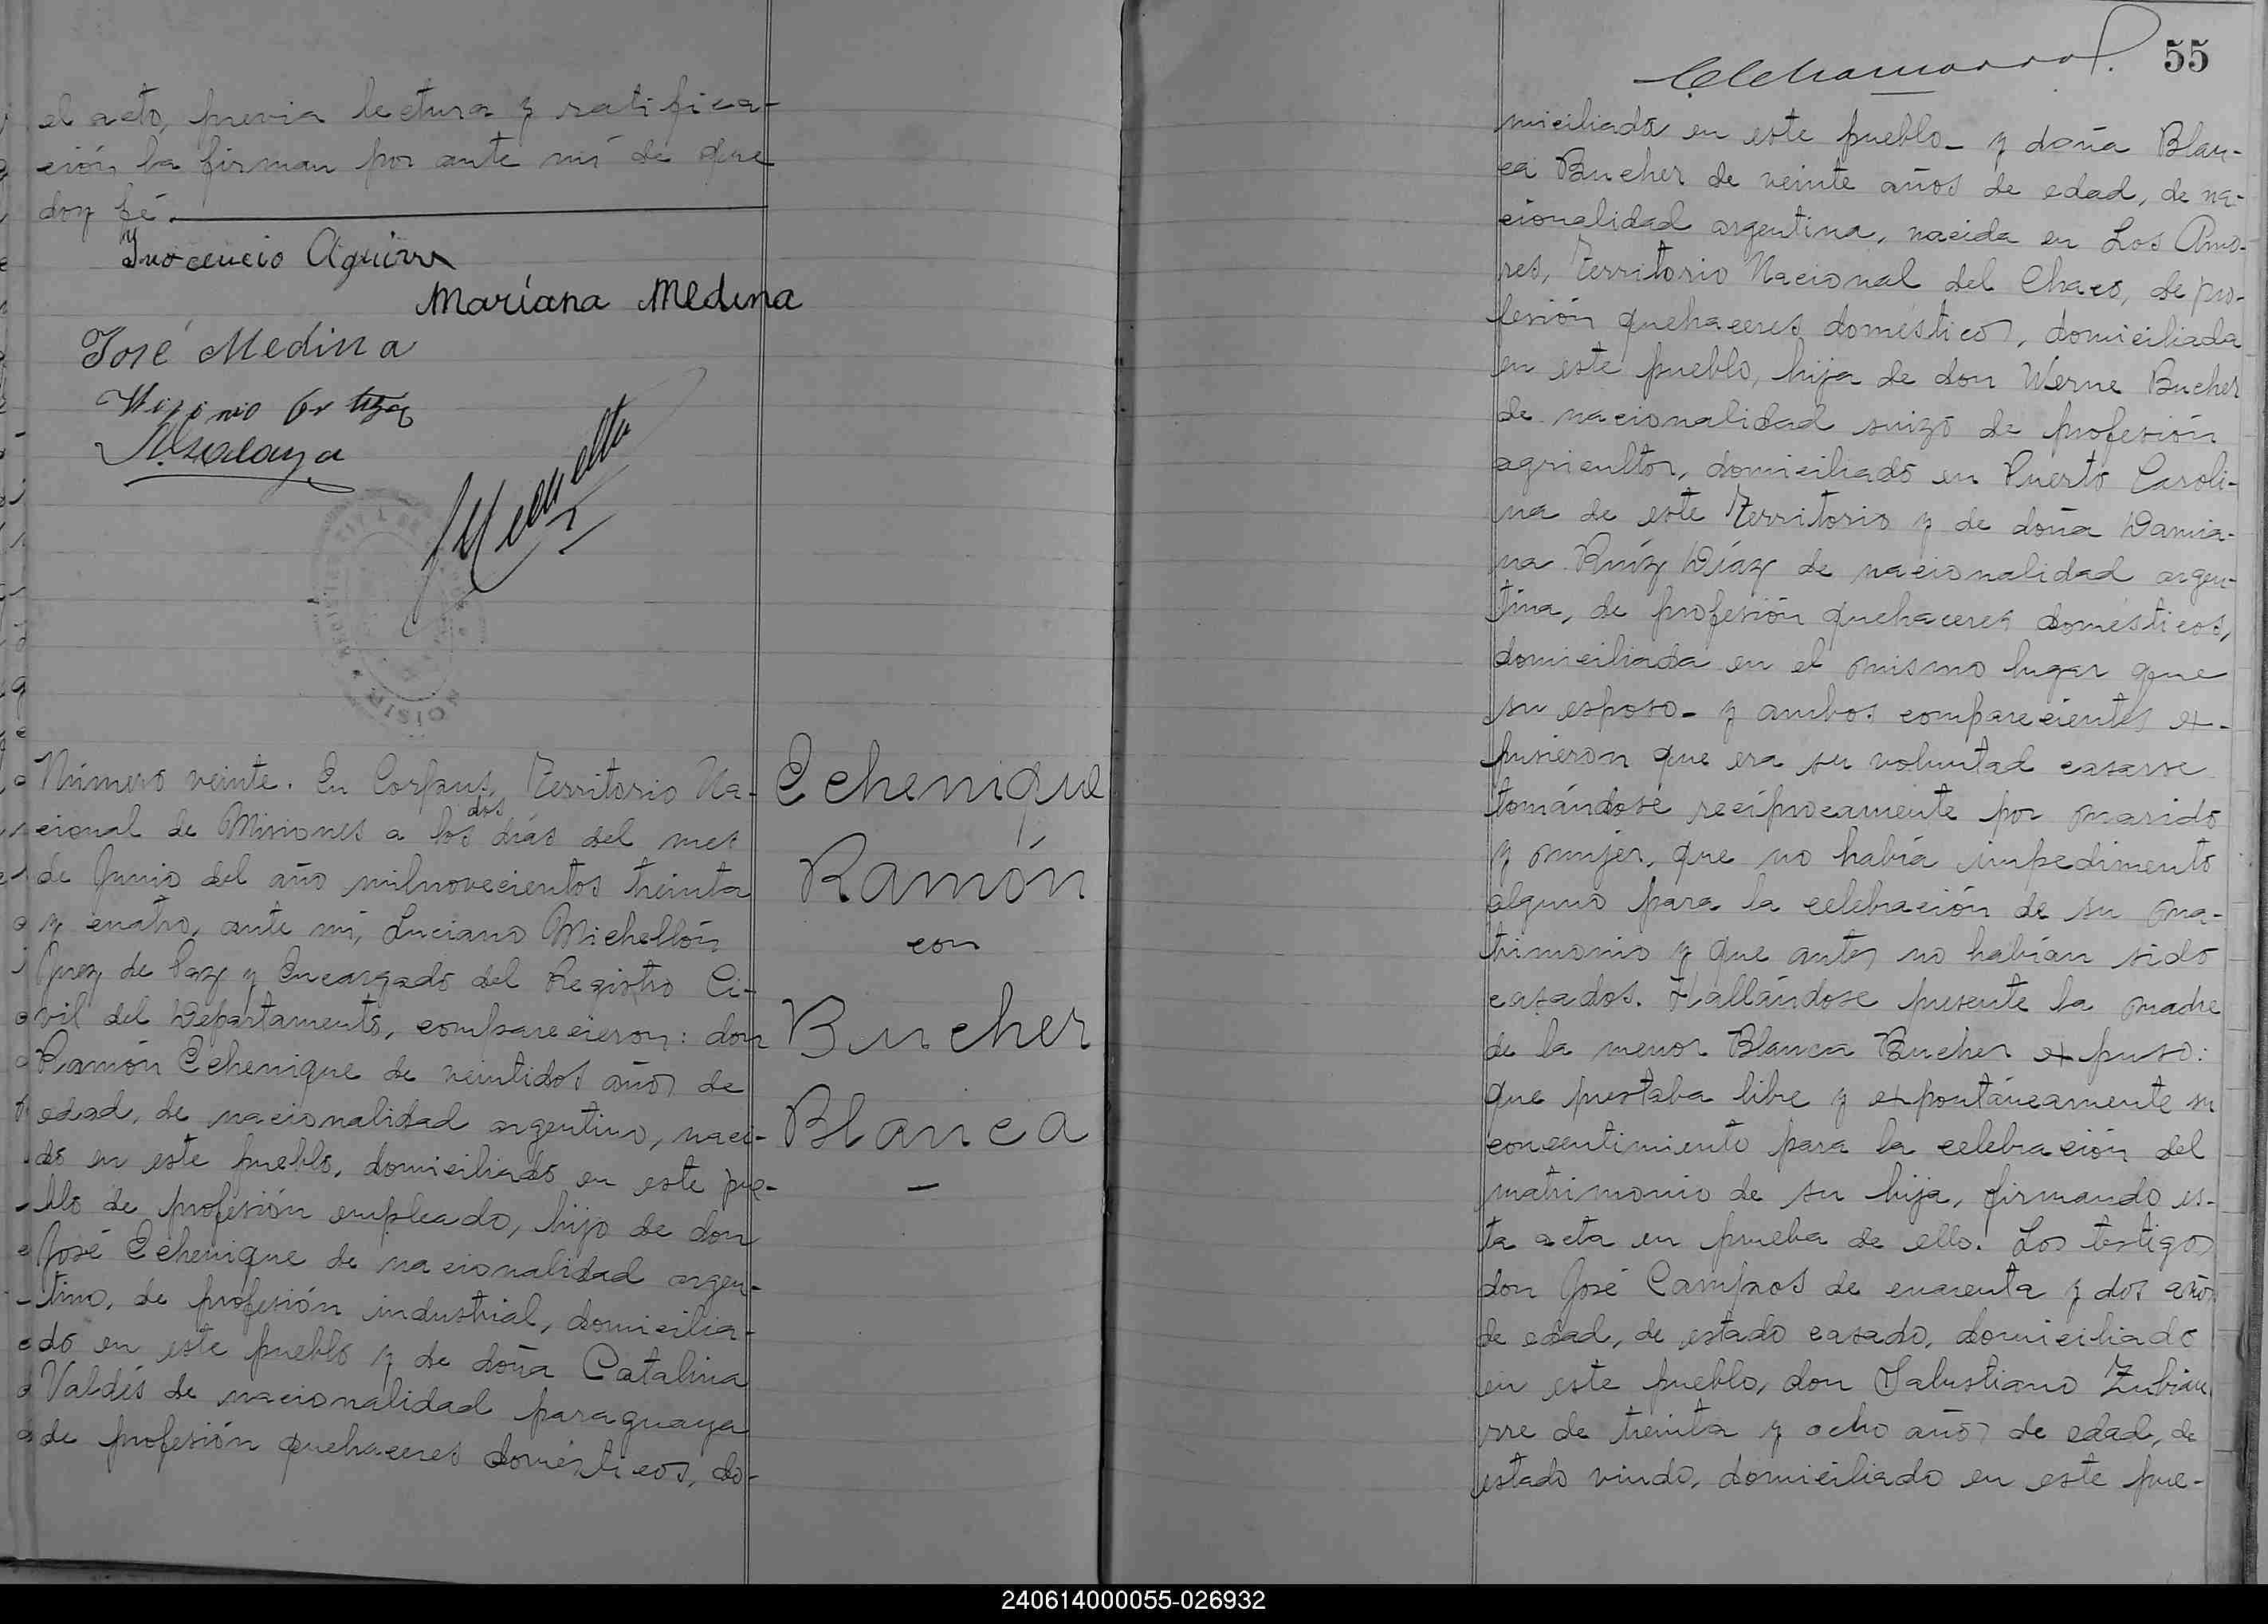 el acto, previa lectura y ratifica-
ción la firman por ante mí de que
doy fé.
Inocencio Aguirre
Mariana Medina
José Medina
Número veinte. En Corpus, Territorio Na-
cional de Misiones a los dos días del mes
de Junio del año milnovecientos treinta
y cuatro, ante mí, Luciano Michellón
Juez de Paz y Encargado del Registro Ci-
vil del Departamento, comparecieron: don
Ramón Echenique de veintidos años de
edad, de nacionalidad argentino, naci-
do en este pueblo, domiciliado en este pue-
blo de profesión empleado, hijo de don
José Echenique de nacionalidad argen-
tino, de profesión industrial, domicilia-
do en este pueblo y de doña Catalina
Valdés de nacionalidad paraguaya
de profesión quehaceres domésticos, do-
Echenique
Ramón
con
Bucher
Blanca
55
miciliada en este pueblo_ y doña Blan-
ca Bucher de veinte años de edad, de na-
cionalidad argentina, nacida en Los Amo-
res, Territorio Nacional del Chaco, de pro-
fesión quehaceres domésticos, domiciliada
en este pueblo, hija de don Werne Bucher
de nacionalidad suizo de profesión
agricultor, domiciliado en Puerto Caroli-
na de este Territorio y de doña Damia-
na Ruíz Díaz de nacionalidad argen-
tina, de profesión quehaceres domésticos,
domiciliada en el mismo lugar que
su esposo_ y ambos comparecientes ex-
pusieron que era su voluntad casarse
tomándose recíprocamente por marido
y mujer, que no había impedimento
alguno para la celebración de su ma-
trimonio y que antes no habían sido
casados. Hallándose presente la madre
de la menor Blanca Bucher expuso:
que prestaba libre y expontáneamente su
concentimiento para la celebración del
matrimonio de su hija, firmando es-
ta acta en prueba de ello. Los testigos
don José Campos de cuarenta y dos años
de edad, de estado casado, domiciliado
en este pueblo, don Salustiano Zubiau
rre de treinta y ocho años de edad, de
estado viudo, domiciliado en este pue-
240614000055-026932